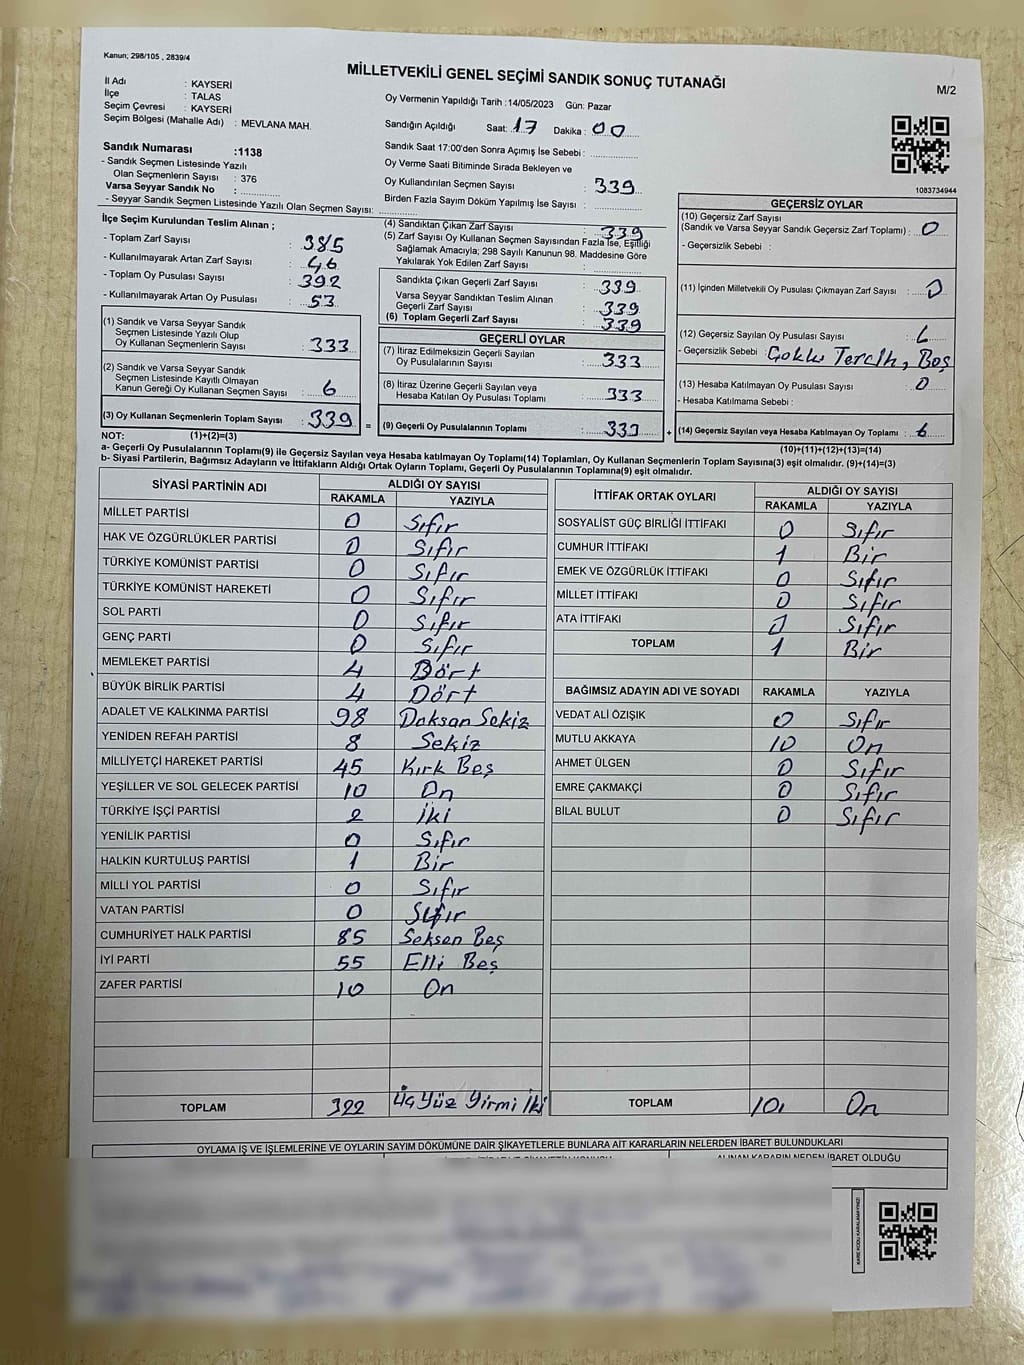 Kanun; 298/105 , 2839/4
MİLLETVEKİLİ GENEL SEÇİMİ SANDIK SONUÇ TUTANAĞI
M/2
İl Adı : KAYSERİ
İlçe : TALAS
Seçim Çevresi : KAYSERİ
Seçim Bölgesi (Mahalle Adı) : MEVLANA MAH.
Sandık Numarası :1138
- Sandık Seçmen Listesinde Yazılı
Olan Seçmenlerin Sayısı : 376
Varsa Seyyar Sandık No :
- Seyyar Sandık Seçmen Listesinde Yazılı Olan Seçmen Sayısı:
Oy Vermenin Yapıldığı Tarih :14/05/2023 Gün: Pazar
Sandığın Açıldığı Saat: 17 Dakika : 00
Sandık Saat 17:00'den Sonra Açımış İse Sebebi :
Oy Verme Saati Bitiminde Sırada Bekleyen ve
Oy Kullandırılan Seçmen Sayısı : 339
Birden Fazla Sayım Döküm Yapılmış İse Sayısı :
1083734944
İlçe Seçim Kurulundan Teslim Alınan ;
- Toplam Zarf Sayısı : 385
- Kullanılmayarak Artan Zarf Sayısı : 46
- Toplam Oy Pusulası Sayısı : 392
- Kullanılmayarak Artan Oy Pusulası : 53
(1) Sandık ve Varsa Seyyar Sandık
Seçmen Listesinde Yazılı Olup
Oy Kullanan Seçmenlerin Sayısı : 333
(2) Sandık ve Varsa Seyyar Sandık
Seçmen Listesinde Kayıtlı Olmayan
Kanun Gereği Oy Kullanan Seçmen Sayısı : 6
(3) Oy Kullanan Seçmenlerin Toplam Sayısı : 339 =
(4) Sandıktan Çıkan Zarf Sayısı : 339
(5) Zarf Sayısı Oy Kullanan Seçmen Sayısından Fazla İse, Eşitliği
Sağlamak Amacıyla; 298 Sayılı Kanunun 98. Maddesine Göre
Yakılarak Yok Edilen Zarf Sayısı :
Sandıkta Çıkan Geçerli Zarf Sayısı : 339
Varsa Seyyar Sandıktan Teslim Alınan
Geçerli Zarf Sayısı : 339
(6) Toplam Geçerli Zarf Sayısı : 339
GEÇERLİ OYLAR
(7) İtiraz Edilmeksizin Geçerli Sayılan
Oy Pusulalarının Sayısı : 333
(8) İtiraz Üzerine Geçerli Sayılan veya
Hesaba Katılan Oy Pusulası Toplamı : 333
(9) Geçerli Oy Pusulalarının Toplamı : 333 +
GEÇERSİZ OYLAR
(10) Geçersiz Zarf Sayısı
(Sandık ve Varsa Seyyar Sandık Geçersiz Zarf Toplamı) : 0
- Geçersizlik Sebebi :
(11) İçinden Milletvekili Oy Pusulası Çıkmayan Zarf Sayısı : 0
(12) Geçersiz Sayılan Oy Pusulası Sayısı : 6
- Geçersizlik Sebebi : Çoklu Tercih, Boş
(13) Hesaba Katılmayan Oy Pusulası Sayısı : 0
- Hesaba Katılmama Sebebi :
(14) Geçersiz Sayılan veya Hesaba Katılmayan Oy Toplamı : 6
NOT: (1)+(2)=(3) (10)+(11)+(12)+(13)=(14)
a- Geçerli Oy Pusulalarının Toplamı(9) ile Geçersiz Sayılan veya Hesaba Katılmayan Oy Toplamı(14) Toplamları, Oy Kullanan Seçmenlerin Toplam Sayısına(3) eşit olmalıdır. (9)+(14)=(3)
b- Siyasi Partilerin, Bağımsız Adayların ve İttifakların Aldığı Ortak Oyların Toplamı, Geçerli Oy Pusulalarının Toplamına(9) eşit olmalıdır.
SİYASİ PARTİNİN ADI ALDIĞI OY SAYISI
RAKAMLA YAZIYLA
MİLLET PARTİSİ 0 Sıfır
HAK VE ÖZGÜRLÜKLER PARTİSİ 0 Sıfır
TÜRKİYE KOMÜNİST PARTİSİ 0 Sıfır
TÜRKİYE KOMÜNİST HAREKETİ 0 Sıfır
SOL PARTİ 0 Sıfır
GENÇ PARTİ 0 Sıfır
MEMLEKET PARTİSİ 4 Dört
BÜYÜK BİRLİK PARTİSİ 4 Dört
ADALET VE KALKINMA PARTİSİ 98 Doksan Sekiz
YENİDEN REFAH PARTİSİ 8 Sekiz
MİLLİYETÇİ HAREKET PARTİSİ 45 Kırk Beş
YEŞİLLER VE SOL GELECEK PARTİSİ 10 On
TÜRKİYE İŞÇİ PARTİSİ 2 İki
YENİLİK PARTİSİ 0 Sıfır
HALKIN KURTULUŞ PARTİSİ 1 Bir
MİLLİ YOL PARTİSİ 0 Sıfır
VATAN PARTİSİ 0 Sıfır
CUMHURİYET HALK PARTİSİ 85 Seksen Beş
İYİ PARTİ 55 Elli Beş
ZAFER PARTİSİ 10 On
TOPLAM 322 Üç Yüz Yirmi İki
İTTİFAK ORTAK OYLARI ALDIĞI OY SAYISI
RAKAMLA YAZIYLA
SOSYALİST GÜÇ BİRLİĞİ İTTİFAKI 0 Sıfır
CUMHUR İTTİFAKI 1 Bir
EMEK VE ÖZGÜRLÜK İTTİFAKI 0 Sıfır
MİLLET İTTİFAKI 0 Sıfır
ATA İTTİFAKI 0 Sıfır
TOPLAM 1 Bir
BAĞIMSIZ ADAYIN ADI VE SOYADI RAKAMLA YAZIYLA
VEDAT ALİ ÖZIŞIK 0 Sıfır
MUTLU AKKAYA 10 On
AHMET ÜLGEN 0 Sıfır
EMRE ÇAKMAKÇİ 0 Sıfır
BİLAL BULUT 0 Sıfır
TOPLAM 10 On
OYLAMA İŞ VE İŞLEMLERİNE VE OYLARIN SAYIM DÖKÜMÜNE DAİR ŞİKAYETLERLE BUNLARA AİT KARARLARIN NELERDEN İBARET BULUNDUKLARI
ALINAN KARARIN NEDEN İBARET OLDUĞU
KARE KODU KARALAMAYINIZ!